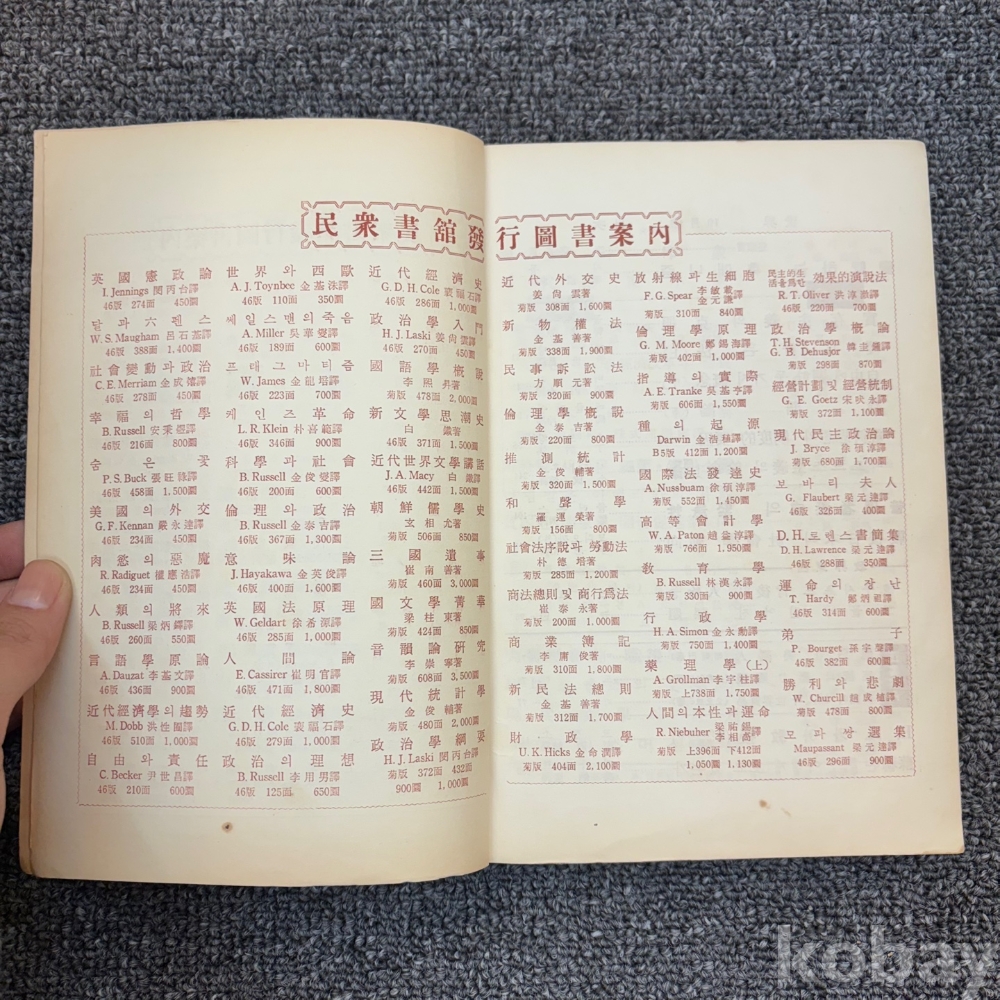 民衆書舘發行圖書案內
英國憲政論
I. Jennings 閔丙台譯
46版 274面 450圜
달과六펜스
W. S. Maugham 呂石基譯
46版 388面 1,400圜
社會變動과政治
C. E. Merriam 金成熺譯
46版 278面 450圜
幸福의哲學
B. Russell 安秉煜譯
46版 216面 800圜
숨은꽃
P. S. Buck 張旺祿譯
46版 458面 1,500圜
美國의外交
G. F. Kennan 嚴永達譯
46版 234面 450圜
肉慾의惡魔
R. Radiguet 權應浩譯
46版 234面 450圜
人類의將來
B. Russell 梁炳鐸譯
46版 260面 550圜
言語學原論
A. Dauzat 李基文譯
46版 436面 900圜
近代經濟學의趨勢
M. Dobb 洪性囿譯
46版 510面 1,000圜
自由와責任
C. Becker 尹世昌譯
46版 210面 600圜
世界와西歐
A. J. Toynbee 金基洙譯
46版 110面 350圜
쎄일스맨의죽음
A. Miller 吳華燮譯
46版 189面 600圜
프래그마티즘
W. James 金龍培譯
46版 223面 700圜
케인즈革命
L. R. Klein 朴喜範譯
46版 346面 900圜
科學과社會
B. Russell 金俊燮譯
46版 200面 600圜
倫理와政治
B. Russell 金泰吉譯
46版 367面 1,300圜
意味論
J. Hayakawa 金英俊譯
46版 400面 1,600圜
英國法原理
W. Geldart 徐希源譯
46版 285面 1,000圜
人間論
E. Cassirer 崔明官譯
46版 471面 1,800圜
近代經濟史
G. D. H. Cole 裵福石譯
46版 279面 1,000圜
政治의理想
B. Russell 李用男譯
46版 125面 650圜
近代經濟史
G. D. H. Cole 裵福石譯
46版 286面 1,000圜
政治學入門
H. J. Laski 姜尙雲譯
46版 270面 450圜
國語學槪說
李熙昇著
菊版 478面 2,000圜
新文學思潮史
白鐵著
46版 371面 1,500圜
近代世界文學講話
J. A. Macy 白鐵譯
46版 442面 1,500圜
朝鮮儒學史
玄相允著
菊版 506面 850圜
三國遺事
崔南善著
菊版 460面 3,000圜
國文學菁華
梁柱東著
菊版 424面 850圜
音韻論硏究
李崇寧著
菊版 608面 3,500圜
現代統計學
金俊輔著
菊版 480面 2,000圜
政治學綱要
H. J. Laski 閔丙台譯
菊版 372面 432面
900圜 1,000圜
近代外交史
姜尙雲著
菊版 308面 1,000圜
新物權法
金基善著
菊版 338面 1,900圜
民事訴訟法
方順元著
菊版 320面 900圜
倫理學槪說
金泰吉著
菊版 220面 800圜
推測統計
金俊輔著
菊版 320面 1,500圜
和聲學
羅運榮著
菊版 156面 800圜
社會法序說과勞動法
朴德培著
菊版 285面 1,200圜
商法總則및商行爲法
崔泰永著
菊版 200面 1,000圜
商業簿記
李庸俊著
菊版 310面 1,800圜
新民法總則
金基善著
菊版 312面 1,700圜
財政學
U. K. Hicks 金命潤譯
菊版 404面 2,100圜
放射線과生細胞
F. G. Spear 李敏載 金元謙譯
菊版 310面 840圜
倫理學原理
G. M. Moore 鄭錫海譯
菊版 402面 1,000圜
指導의實際
A. E. Tranke 吳基亨譯
菊版 606面 1,550圜
種의起源
Darwin 金浩稙譯
B5版 412面 1,200圜
國際法發達史
A. Nussbuam 徐碩淳譯
菊版 552面 1,450圜
高等會計學
W. A. Paton 趙益淳譯
菊版 766面 1,950圜
敎育學
B. Russell 林漢永譯
菊版 330面 900圜
行政學
H. A. Simon 金永勳譯
菊版 750面 1,400圜
藥理學(上)
A. Grollman 李宇柱譯
菊版 上738面 1,750圜
人間의本性과運命
R. Niebuher 梁祐錫 李相高譯
菊版 上396面 下412面
1,050圜 1,130圜
民主的生活을爲한 効果的演說法
R. T. Oliver 洪淳譯
46版 220面 700圜
政治學槪論
T. H. Stevenson
G. B. Dehusjor 韓圭鍾譯
46版 298面 870圜
經營計劃및經營統制
G. E. Goetz 宋暎永譯
菊版 372面 1,100圜
現代民主政治論
J. Bryce 徐碩淳譯
菊版 680面 1,700圜
보바리夫人
G. Flaubert 梁元達譯
46版 326面 400圜
D. H. 로렌스書簡集
D. H. Lawrence 梁元達譯
46版 288面 350圜
運命의장난
T. Hardy 鄭炳祖譯
46版 314面 600圜
弟子
P. Bourget 孫宇聲譯
46版 382面 600圜
勝利와悲劇
W. Churcill 趙成植譯
菊版 478面 800圜
모파쌍選集
Maupassant 梁元達譯
46版 296面 900圜
kobay